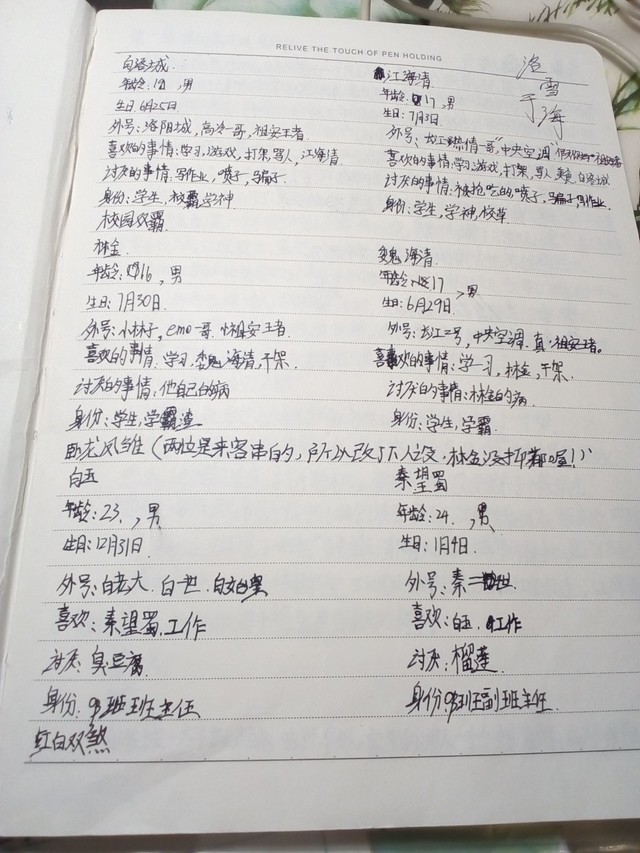 RELIVE THE TOUCH OF PEN HOLDING
澄雪于海
白洛城.
年龄: ,男
生日:6月25日
外号:洛阳城,高冷一哥,祖安王者
喜欢的事情:学习,游戏,打架,骂人,江海清
讨厌的事情:写作业,喷子,骗子.
身份:学生,校霸,学神
校园双霸
江海清
年龄:17,男
生日:7月3日
外号:龙江热情一哥,"中央空调"
喜欢的事情:学习,游戏,打架,骂人,白洛城
讨厌的事情:被抢吃的,喷子,骗子,写作业.
身份:学生,学神,校草.
林金.
年龄:16,男
生日:7月30日.
外号:小林子,emo一哥.祖安王者
喜欢的事情.学习,魏海清,干架.
讨厌的事情:他自己的病
身份:学生,学渣
魏海清.
年龄:17,男
生日:6月29日.
外号:龙江二号,中央空调.真·祖安王者。
喜欢的事情:学习,林金,干架.
讨厌的事情:林金的病.
身份:学生,学霸.
卧龙凤雏(两位是来客串的,所以改了人设.林金没抑郁喔!)
白玉
年龄:23.,男
生日:12月31日.
外号:白老大.白一世.
喜欢:秦望蜀.工作
讨厌:臭豆腐
身份.93班班主任
秦望蜀
年龄:24.,男
生日:1月4日.
外号:秦二世
喜欢:白玉.工作
讨厌:榴莲
身份:93班副班主任.
红白双煞